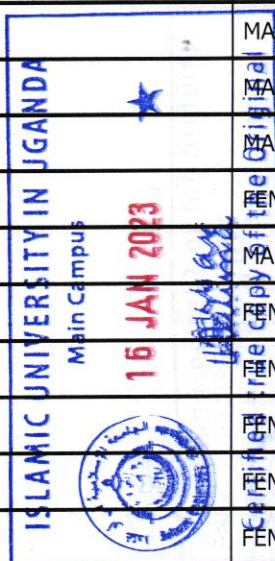 ISLAMIC UNIVERSITY IN UGANDA
Main Campus
16 JAN 2023
Certified true copy of the Original
MA
MA
MA
FEM
MA
FEM
FEM
FEM
FEM
FEM